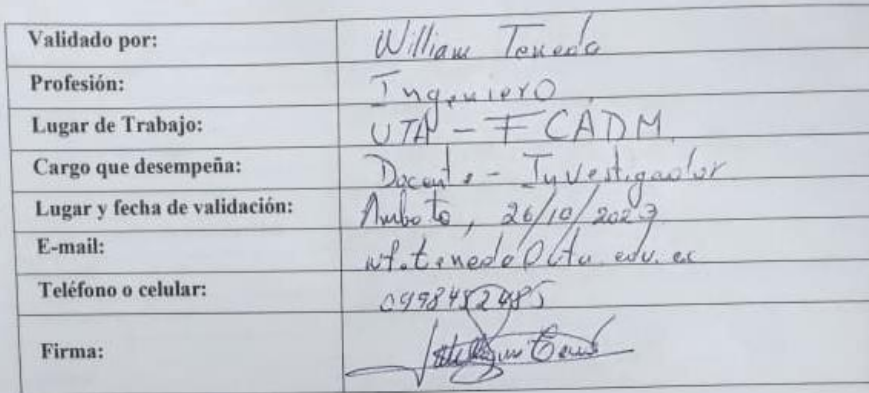 Validado por: William Teneda
Profesión: Ingeniero
Lugar de Trabajo: UTA - FCADM
Cargo que desempeña: Docente - Investigador
Lugar y fecha de validación: Ambato, 26/10/2023
E-mail:
Teléfono o celular: 0998482485
Firma: